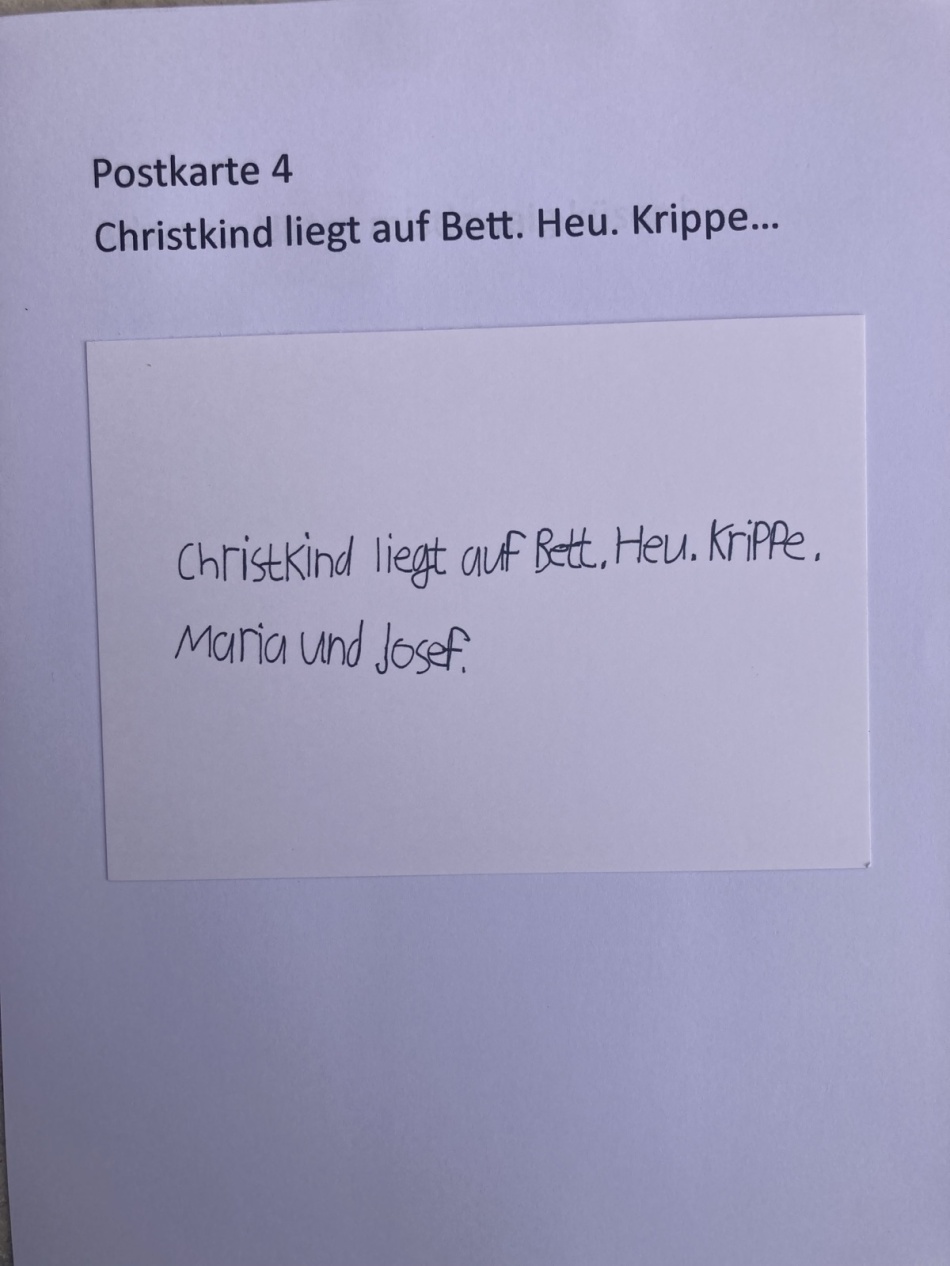 Postkarte 4
Christkind liegt auf Bett. Heu. Krippe...
Christkind liegt auf Bett. Heu. Krippe.
Maria und Josef.